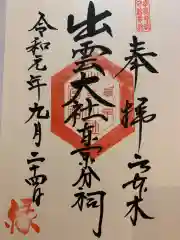 奉拝 六本木
出雲大社東京分祠
令和元年九月二十四日
縁